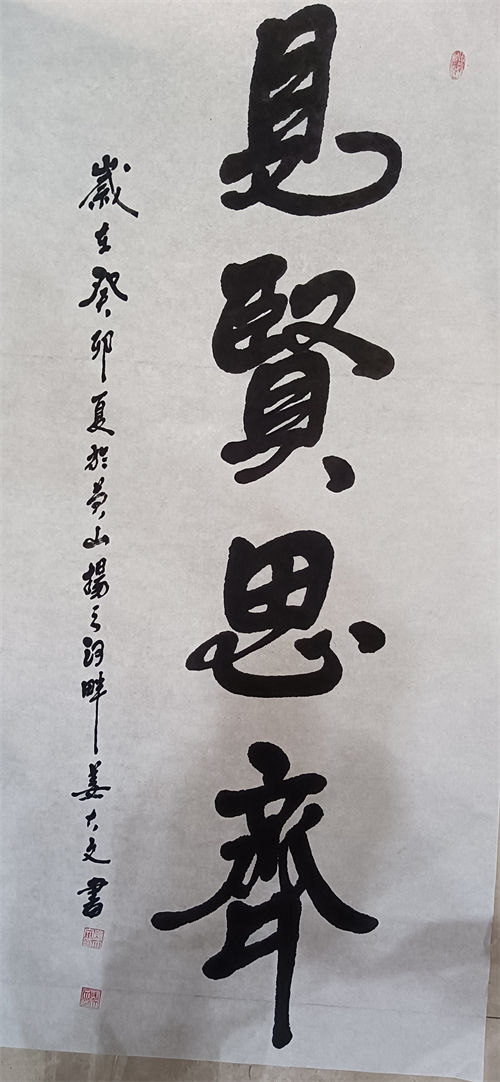 見賢思齊
歲在癸卯夏於黄山揚之河畔姜大文書